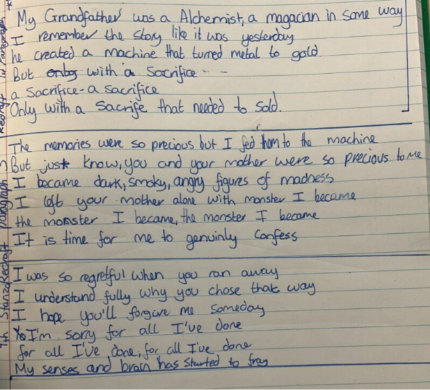 My Grandfather was a Alchemist, a magacian in some way
I remember the story like it was yesterday
he created a machine that turned metal to gold
But only with a Sacrifice - -
a Sacrifice - a Sacrifice
Only with a Sacrife that needed to Sold.
The memories were so precious but I fed them to the machine
But just know, you and your mother were so precious to me
I became dark, smoky, angry figures of madness
I left your mother alone with monster I became
the monster I became, the monster I became
It is time for me to genuinly Confess
I was so regretful when you ran away
I understand fully why you chose that way
I hope you'll forgive me someday
I'm sorry for all I've done
for all I've done, for all I've done
My senses and brain has started to fray